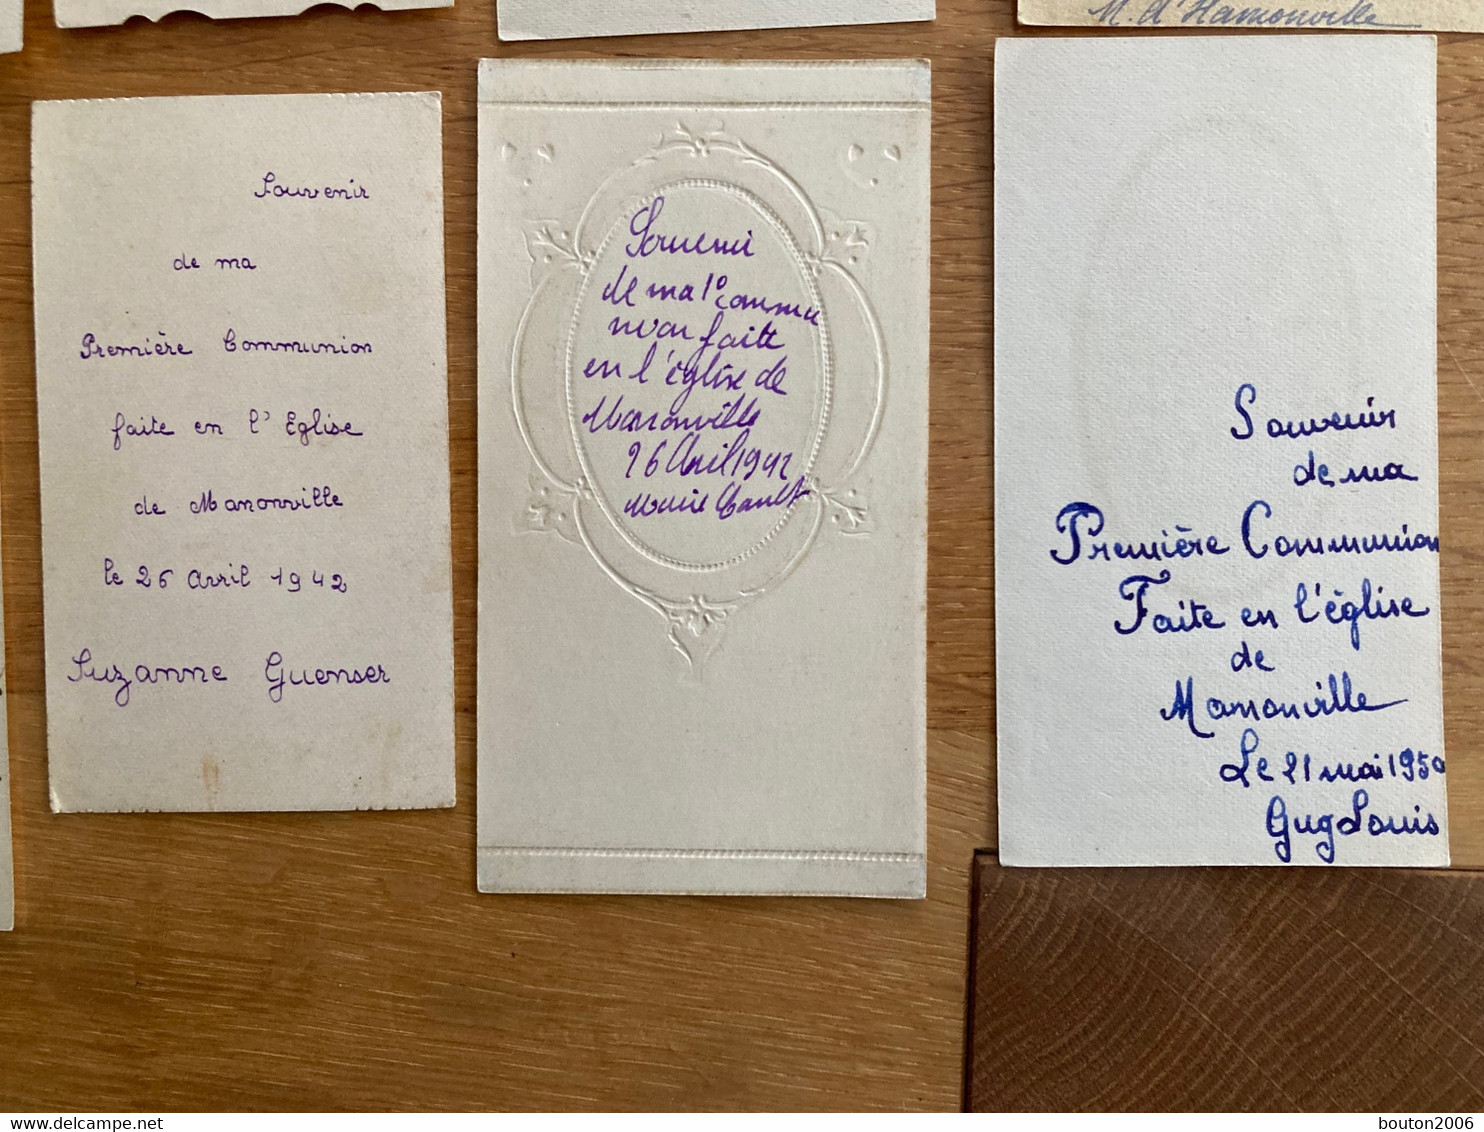 M. d'Hamonville
Souvenir
de ma
Première Communion
faite en l'Eglise
de Manonville
le 26 avril 1942
Suzanne Guenser
Souvenir
de ma 1º commu
nion faite
en l'église de
Manonville
26 Avril 1942
Marie
Souvenir
de ma
Première Communion
Faite en l'église
de
Manonville
Le 21 mai 1950
Guy Louis
delcampe.net
bouton2006